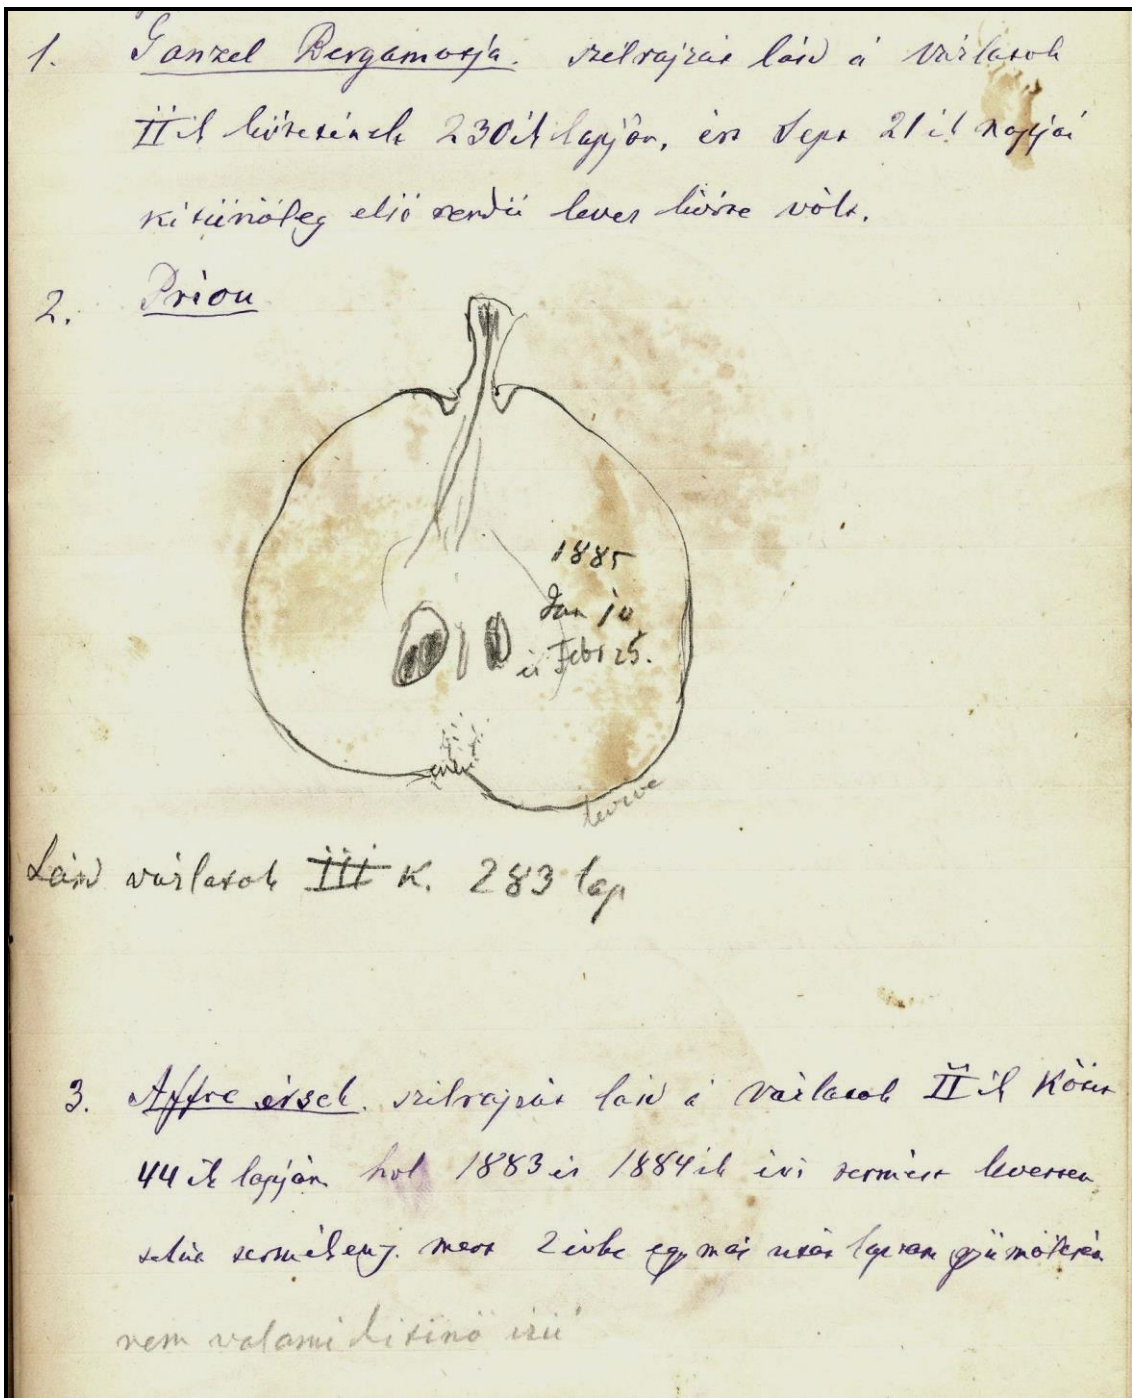 1. Ganzel Bergamotja. szelrajzát lásd á vázlatok
II ik kötetének 230 ik lapján, ért Sept 21 ik napjai
kitünöleg elsö rendü leves körte vólt.
2. Priou
1885
Jan 10
és Febr 25.
körte
Lásd vázlatok III K. 283 lap
3. Affre érsek. szelrajzát lásd á vázlatok II ik Kötet
44 ik lapján hol 1883 és 1884 ik évi termést
mert 2 évbe egy más után
nem valami kitünö izü